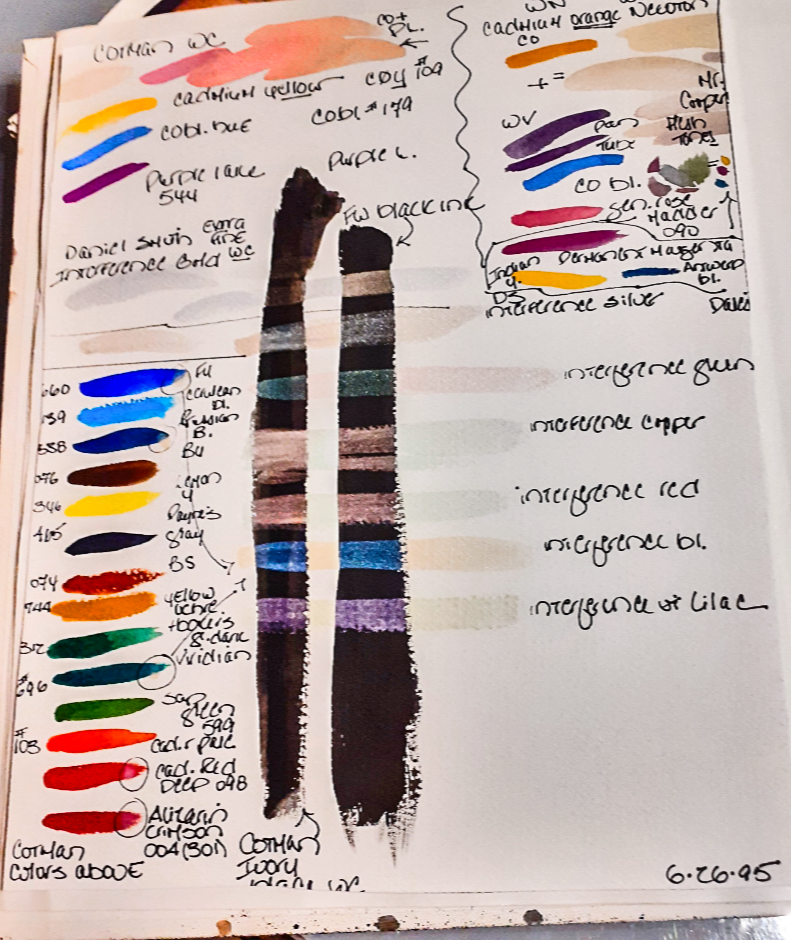 Cotman WC
CO+
PL.
Cadmium yellow
CDY #109
Cobl. hue
Cobl #179
Purple lake
544
Purple L.
FW black ink
Daniel Smith Extra
Fine
Interference Gold WC
WN
Cadmium orange Newton
CO
+ =
Mr.
Cooper
Flesh
Tones
WV
pan
Tube
CO bl.
Gen. rose
Madder
090
Indian
Y.
Permanent Magenta
Antwerp
bl.
DS
Interference Silver
660
FU
139
Cerulean
bl.
Prussian
B.
538
BU
076
Lemon
Y
346
Payne's
Gray
465
BS
074
744
Yellow
Ochre
+ Hookers
G. dark
312
Viridian
#
696
Sap
Green
599
#
103
Cad. r pale
Cad. Red
Deep 098
Alizarin
Crimson
004 (301)
Cotman
Colors above
Cotman
Ivory
black WC
interference green
interference copper
interference red
interference bl.
interference vi lilac
6.26.95